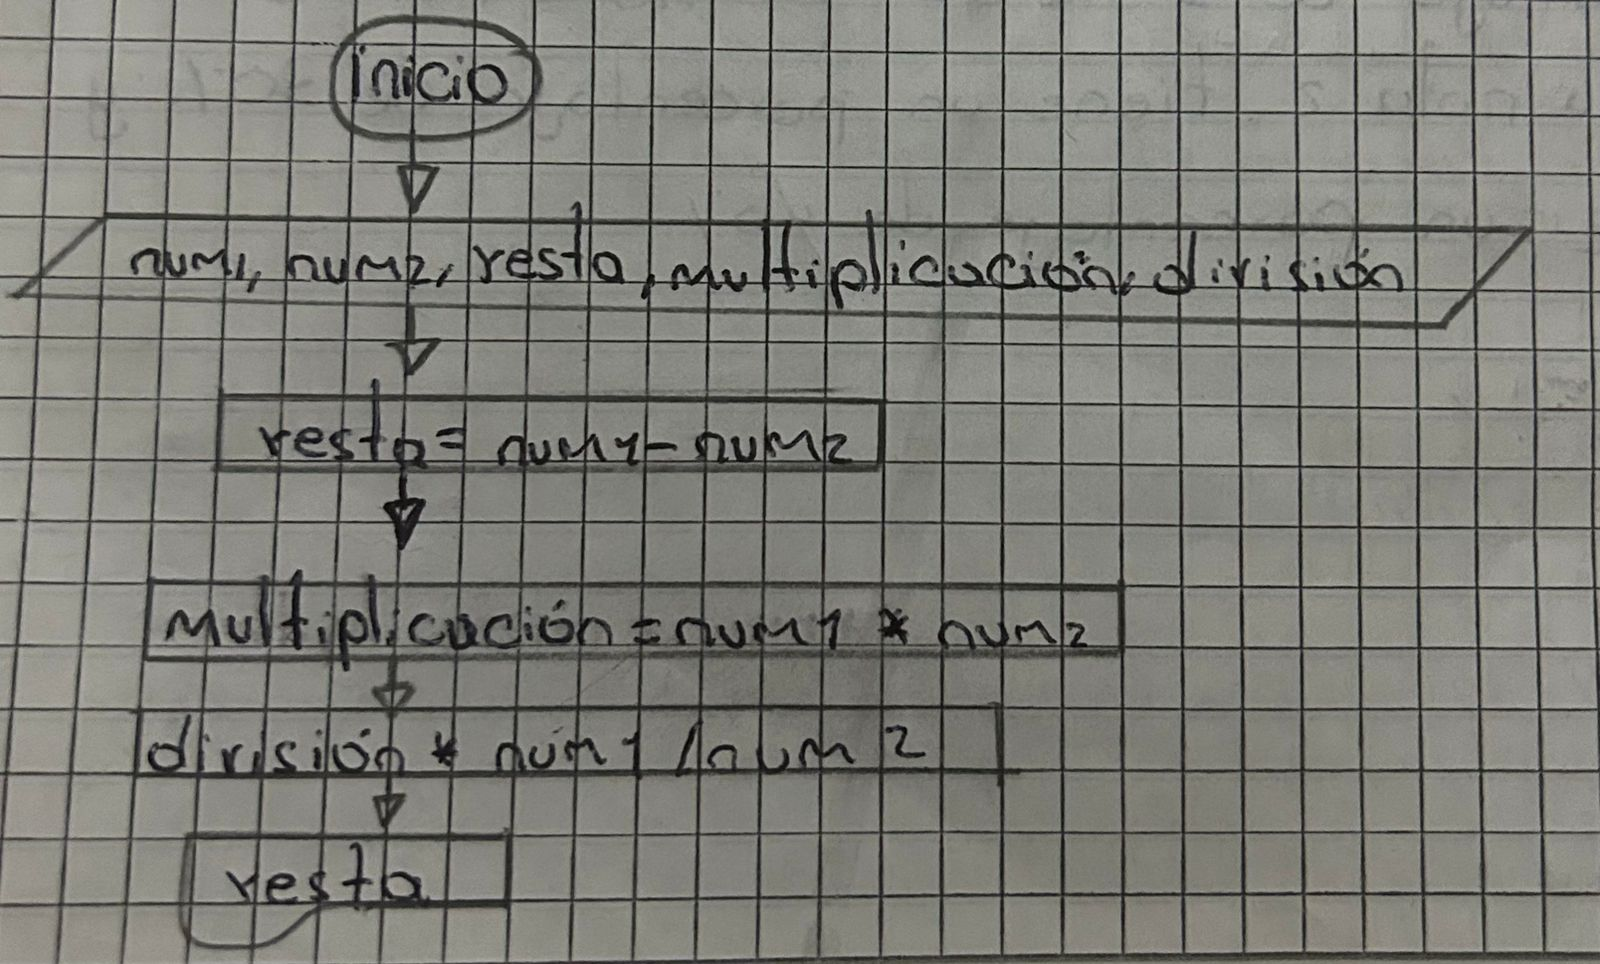 inicio
num1, num2, resta, multiplicación, división
resta = num1 - num2
multiplicación = num1 * num2
división * num1 / num2
resta